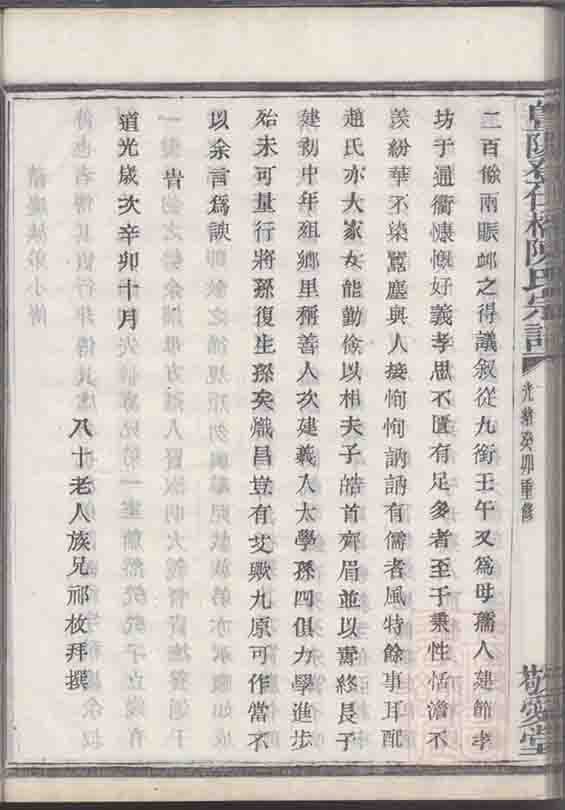 二百餘兩賑䘏之得議叙從九銜壬午又為母孺人建節孝
坊于通衢慷慨好義孝思不匱有足多者至于秉性恬澹不
羨紛華不染囂塵與人接恂恂訥訥有儒者風特餘事耳配
趙氏亦大家女能勤儉以相夫子皓首齊眉並以壽終長子
建初中年殂鄉里稱善人次建義入太學孫四俱力學進步
殆未可量行將孫復生孫矣熾昌豈有艾歟九原可作當不
以余言為諛
旹
道光歲次辛卯十月
八十老人族兄祁枚拜撰
陳氏宗譜
光緒癸卯重修
敬愛堂